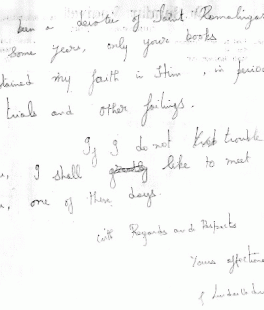 been a devotee of Saint Ramalinga
Some years, only your books
tained my faith in Him, in period
trials and other failings.
If I do not trouble
u, I shall like to meet
u, one of these days.
with Regards and Respects
Yours affectiona